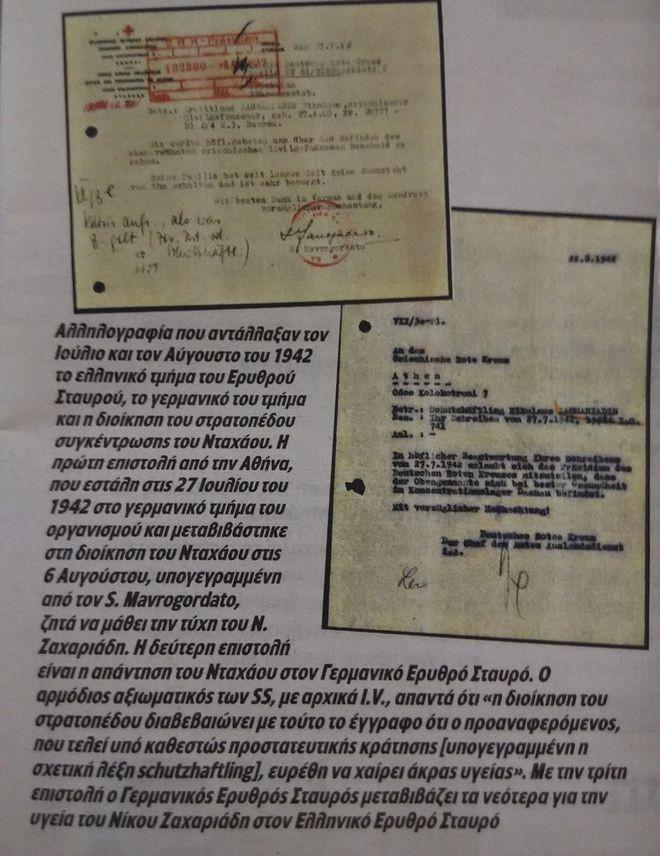 den 27.7.42
Deutsche Rote Kreuz
Betr.: Ermittlung ZACHARIADIS Nikolaus, griechischer
Zivilgefangener, geb. 27.4.03, Nr.
Bl 2/4 K.3, Dachau.
Sie werden höfl. gebeten uns über das Befinden des
obenerwähnten griechischen Zivilgefangenen Bescheid zu
geben.
Seine Familie hat seit langer Zeit keine Nachricht
von ihm erhalten und ist sehr besorgt.
Mit besten Dank im Voraus und dem Ausdruck
vorzüglicher Hochachtung,
S. Mavrogordato
22.8.1942
An das
Griechische Rote Kreuz
Athen
Odos Kolokotroni 7
Betr.: Schutzhäftling Nikolaus ZACHARIADIS
Bez.: Ihr Schreiben vom 27.7.1942,
741
Anl.: -
In höflicher Beantwortung Ihres Schreibens
vom 27.7.1942 erlaubt sich das Präsidium des
Deutschen Roten Kreuzes mitzuteilen, dass
der Obengenannte sich bei bester Gesundheit
im Konzentrationslager Dachau befindet.
Mit vorzüglicher Hochachtung!
Deutsches Rotes Kreuz
Der Chef des Amtes Auslandsdienst
Αλληλογραφία που αντάλλαξαν τον
Ιούλιο και τον Αύγουστο του 1942
το ελληνικό τμήμα του Ερυθρού
Σταυρού, το γερμανικό του τμήμα
και η διοίκηση του στρατοπέδου
συγκέντρωσης του Νταχάου. Η
πρώτη επιστολή από την Αθήνα,
που εστάλη στις 27 Ιουλίου του
1942 στο γερμανικό τμήμα του
οργανισμού και μεταβιβάστηκε
στη διοίκηση του Νταχάου στις
6 Αυγούστου, υπογεγραμμένη
από τον S. Mavrogordato,
ζητά να μάθει την τύχη του Ν.
Ζαχαριάδη. Η δεύτερη επιστολή
είναι η απάντηση του Νταχάου στον Γερμανικό Ερυθρό Σταυρό. Ο
αρμόδιος αξιωματικός των SS, με αρχικά I.V., απαντά ότι «η διοίκηση του
στρατοπέδου διαβεβαιώνει με τούτο το έγγραφο ότι ο προαναφερόμενος,
που τελεί υπό καθεστώς προστατευτικής κράτησης [υπογεγραμμένη η
σχετική λέξη schutzhaftling], ευρέθη να χαίρει άκρας υγείας». Με την τρίτη
επιστολή ο Γερμανικός Ερυθρός Σταυρός μεταβιβάζει τα νεότερα για την
υγεία του Νίκου Ζαχαριάδη στον Ελληνικό Ερυθρό Σταυρό